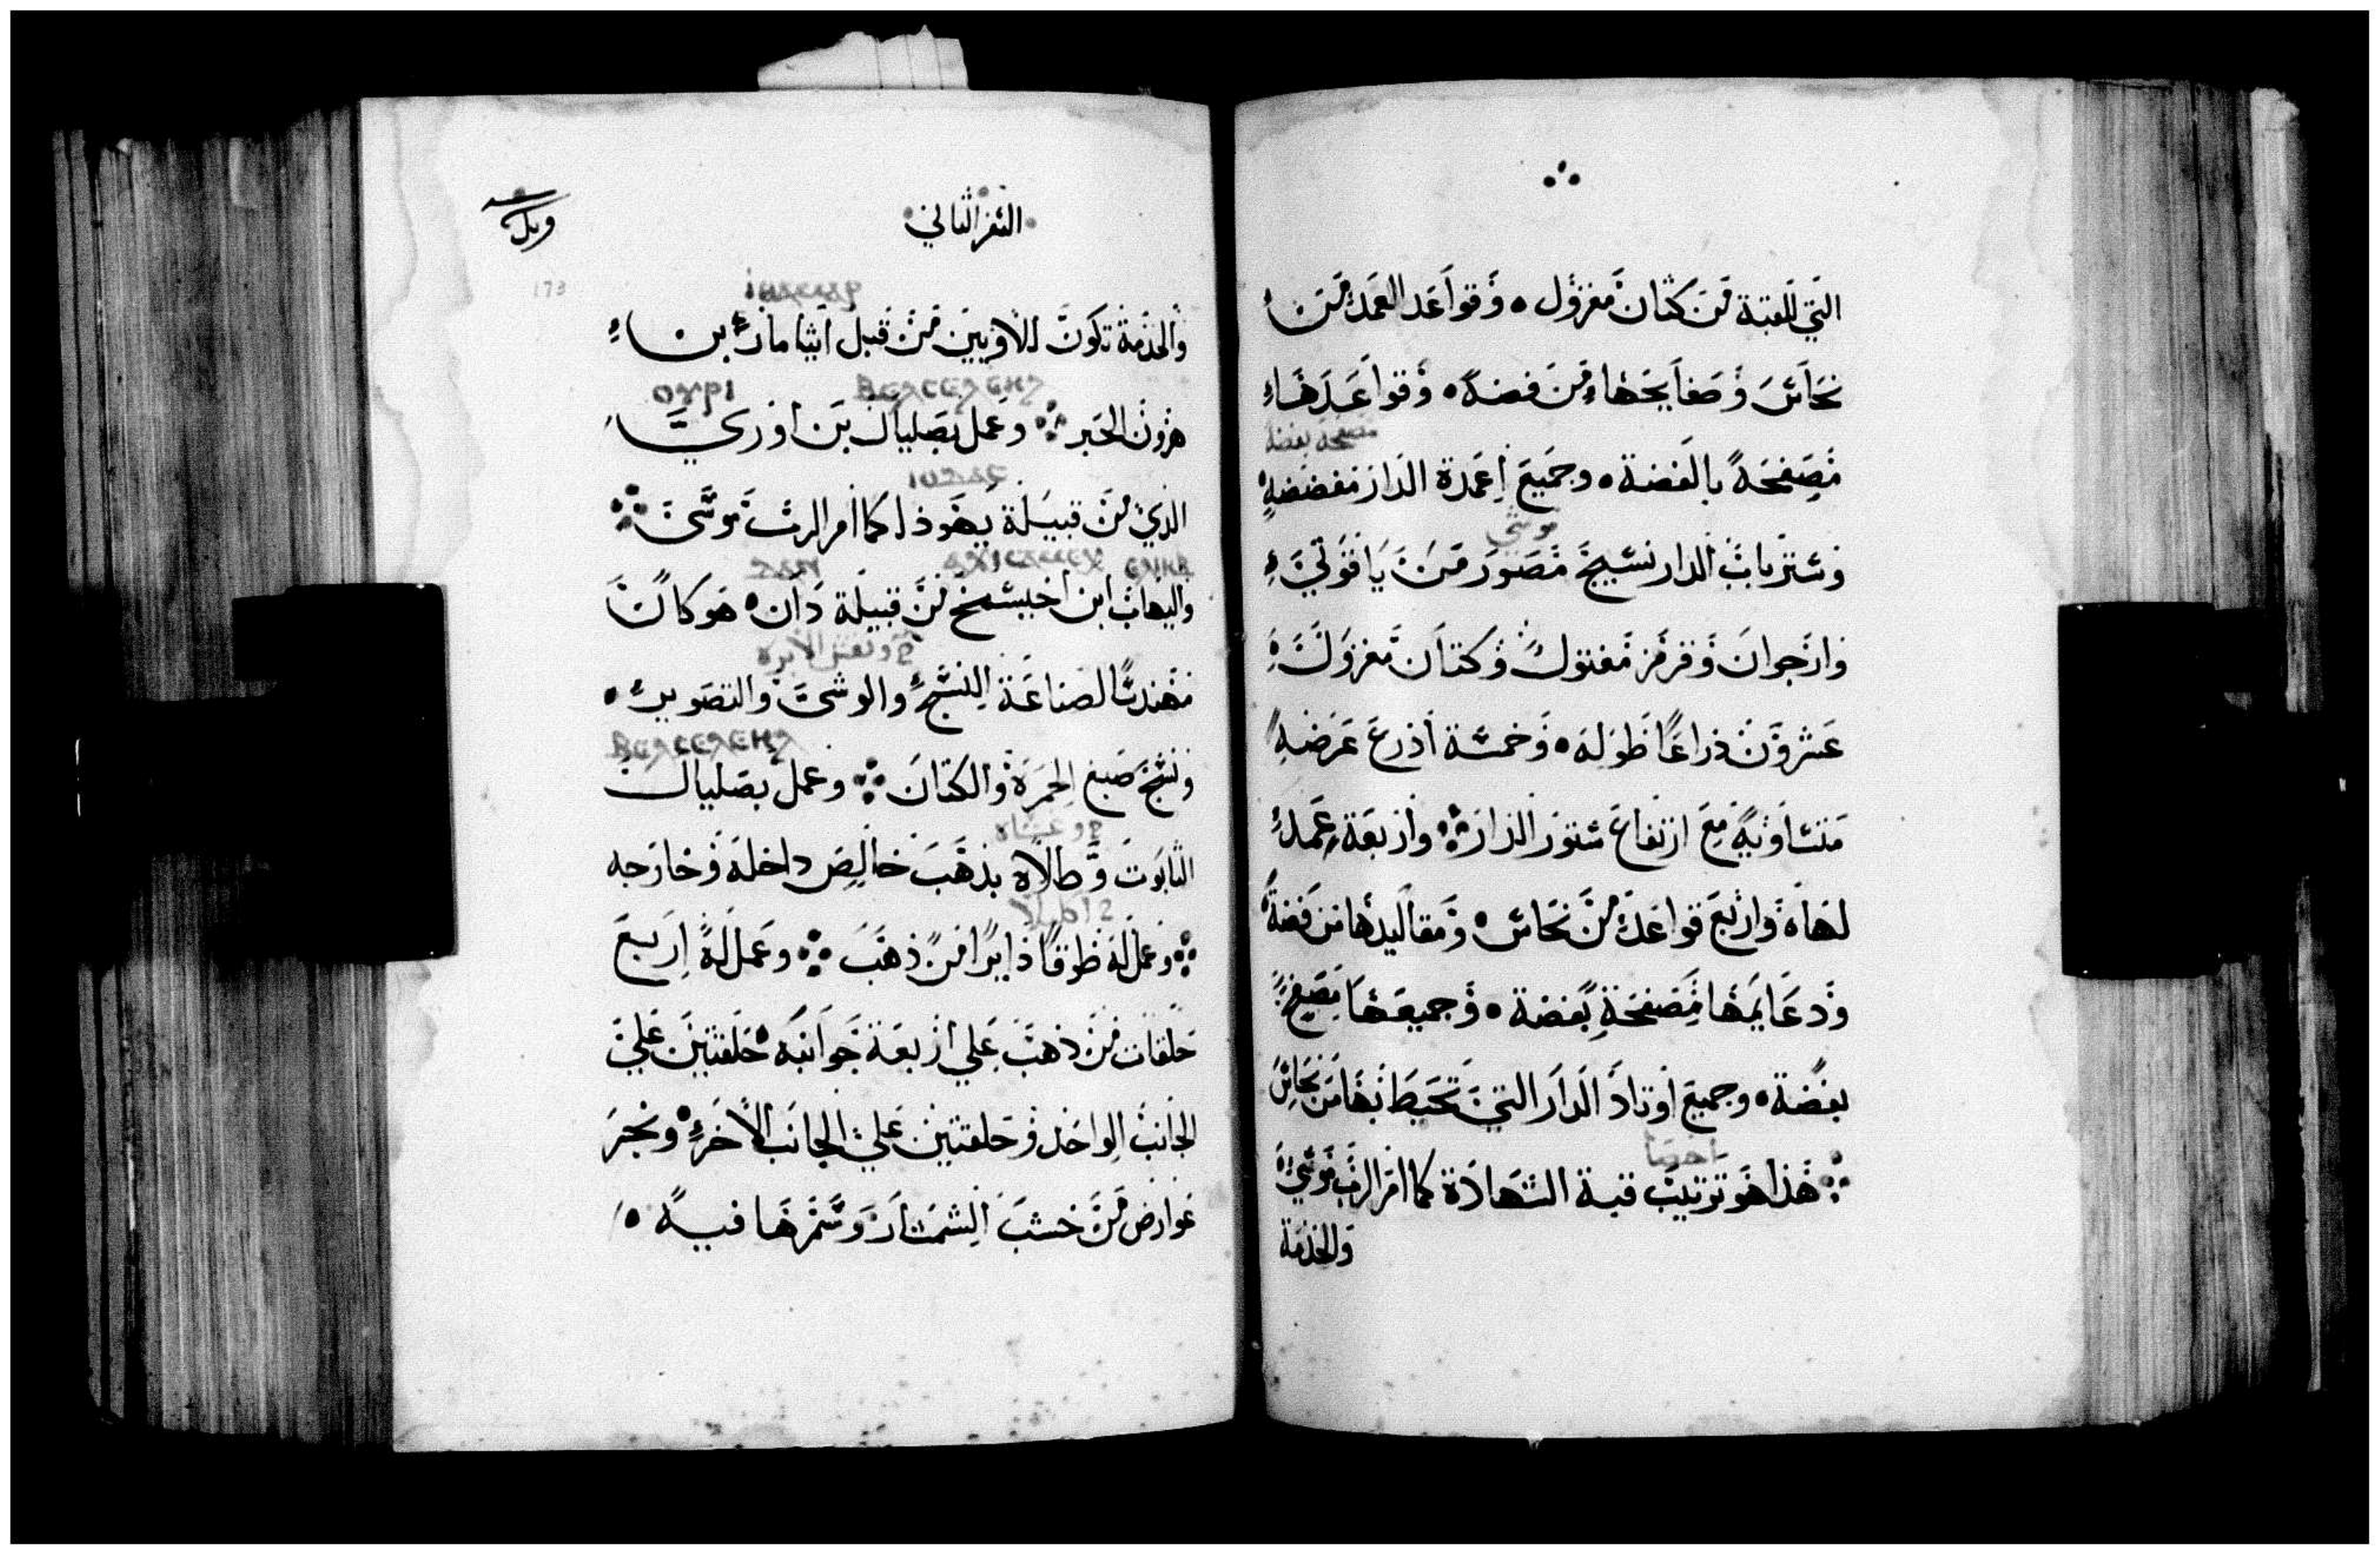 التي للقبة من كتان مغزول ٥ وقواعد العمد من
نحاس وصفايحها من فضه ٥ وقواعدها
مصفحة بفضة
مصفحة بالفضة ٥ وجميع اعمدة الدار مفضضه
موشي
وستر باب الدار نسيج مصور من ياقوتي
وارجوان وقرمز مفتول وكتان مغزول
عشرون ذراعا طوله ٥ وخمسة اذرع عرضه
متساويه مع ارتفاع ستور الدار ۞ واربعة عمد
لها ٥ واربع قواعد من نحاس ٥ ومقاليدها من فضة
ودعايمها مصفحة بفضة ٥ وجميعها مصفح
بفضة ٥ وجميع اوتاد الدار التي تحيط بها من نحاس
۞ هذا هو ترتيب قبة الشهادة كما امر الرب موسي
والخدمة
السفر الثاني
173
والخدمة تكون للاويين من قبل ايثامار بن
ⲟⲩⲣⲓ ⲃⲉⲥⲉⲗⲉⲏⲗ
هرون الحبر ۞ وعمل بصليال بن اوري
ⲓⲟⲩⲇⲁⲥ
الذي من قبيلة يهوذا كما امر الرب موسى ۞
ⲇⲁⲛ
والياب ابن اخيسمخ من قبيلة دان ٥ هو كان
ونقش الابره
مهندسا لصناعة النسج والوشى والتصوير ٥
ⲃⲉⲥⲉⲗⲉⲏⲗ
ونسج صبغ الحمرة والكتان ۞ وعمل بصليال
وغشاه
التابوت وطلاه بذهب خالص داخله وخارجه
اكليلا
۞ وعمل له طوقا دايرا من ذهب ۞ وعمل له اربع
حلقات من ذهب علي اربعة جوانبه ٥ حلقتين علي
الجانب الواحد وحلقتين علي الجانب الاخر ٥ ونجر
عوارض من خشب الشمشار وسمرها فيه ٥